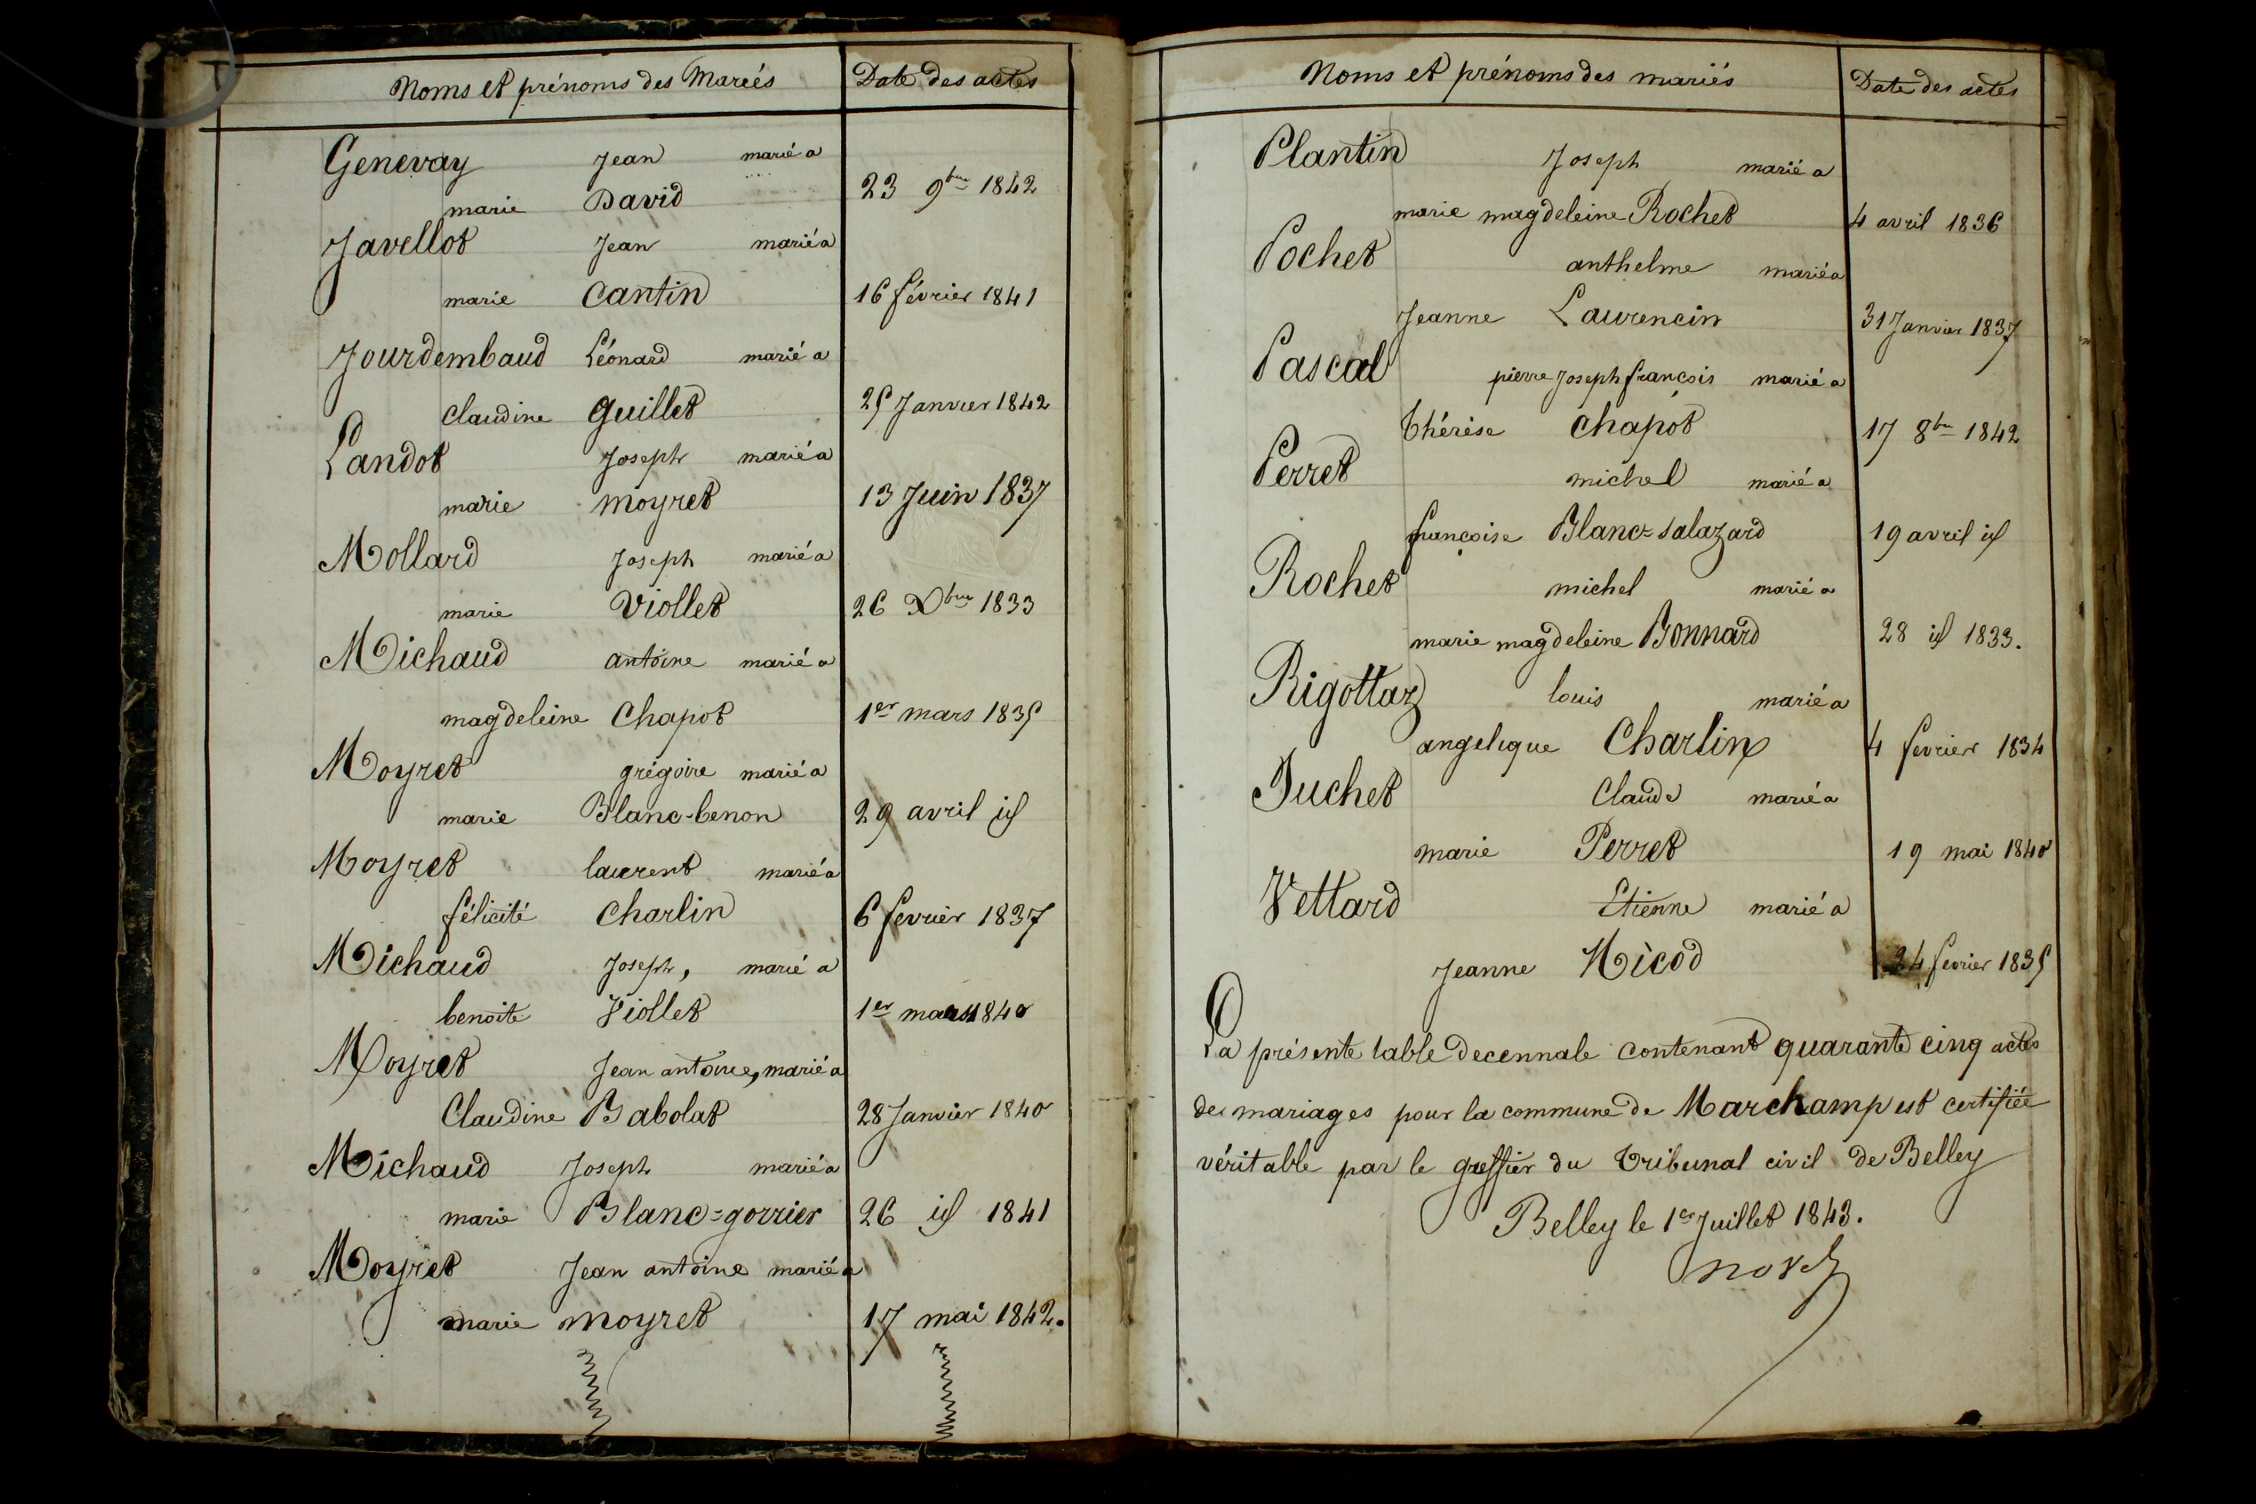 Noms et prénoms des Mariés Date des actes
Genevay Jean marié a
marie David 23 9bre 1842
Javellot Jean marié a
marie Cantin 16 février 1841
Jourdembaud Léonard marié a
Claudine Guillet 25 Janvier 1842
Landot Joseph marié a
marie moyret 13 Juin 1837
Mollard Joseph marié a
marie Viollet 26 Xbre 1833
Michaud antoine marié a
magdeleine Chapot 1er mars 1835
Moyret grégoire marié a
marie Blanc-benon 29 avril id
Moyret laurent marié a
félicité Charlin 6 fevrier 1837
Michaud Joseph, marié a
benoite Viollet 1er mars 1840
Moyret Jean antoine, marié a
Claudine Babolat 28 Janvier 1840
Michaud Joseph marié a
marie Blanc=gorrier 26 id 1841
Moyret Jean antoine marié a
marie moyret 17 mai 1842.
Noms et prénoms des mariés Date des actes
Plantin Joseph marié a
marie magdeleine Rochet 4 avril 1836
Pochet anthelme marié a
Jeanne Laurencin 31 Janvier 1837
Pascal pierre Joseph françois marié a
Thérèse Chapot 17 8bre 1842
Perret michel marié a
françoise Blanc=salazard 19 avril id
Rochet michel marié a
marie magdeleine Bonnard 28 id 1833.
Rigottaz louis marié a
angelique Charlin 4 fevrier 1834
Juchet Claude marié a
marie Perret 19 mai 1840
Vettard Etienne marié a
Jeanne Nicod 24 fevrier 1835
La présente table decennale contenant quarante cinq actes
des mariages pour la commune de Marchamp est certifiée
véritable par le greffier du Tribunal civil de Belley
Belley le 1er Juillet 1843.